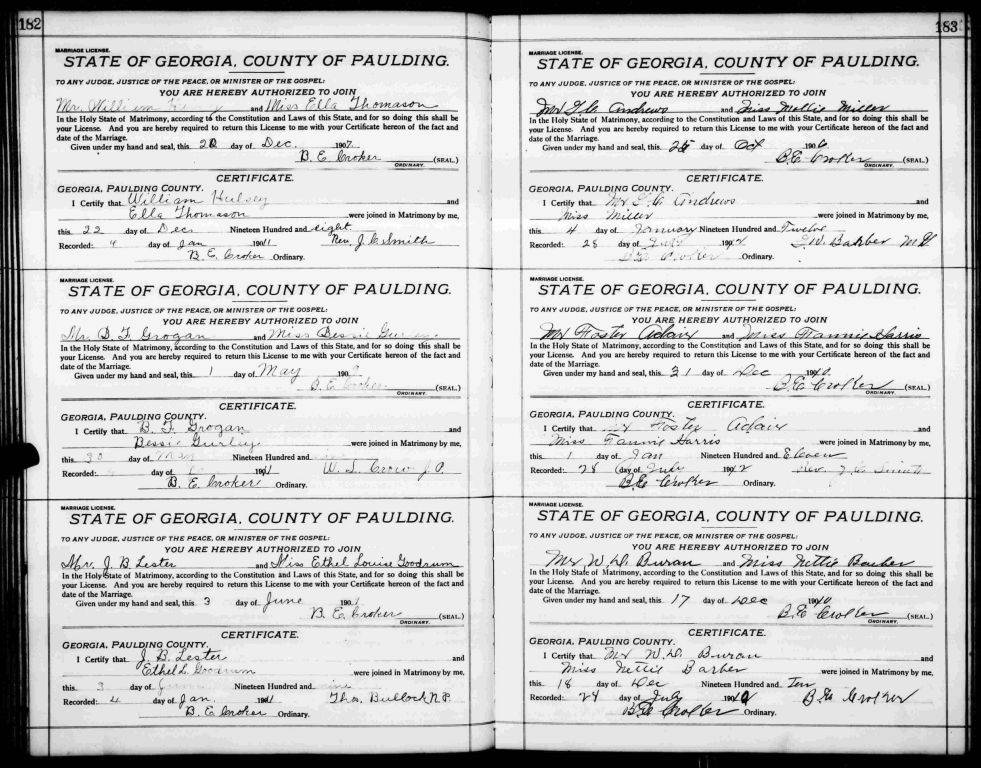 182
MARRIAGE LICENSE.
STATE OF GEORGIA, COUNTY OF PAULDING.
TO ANY JUDGE, JUSTICE OF THE PEACE, OR MINISTER OF THE GOSPEL:
YOU ARE HEREBY AUTHORIZED TO JOIN
Mr. William and Miss Ella Thomason
In the Holy State of Matrimony, according to the Constitution and Laws of this State, and for so doing this shall be
your License. And you are hereby required to return this License to me with your Certificate hereon of the fact and
date of the Marriage.
Given under my hand and seal, this 20 day of Dec. 1907.
B. E. Croker (SEAL.)
ORDINARY.
CERTIFICATE.
GEORGIA, PAULDING COUNTY.
I Certify that William Hulsey and
Ella Thomason were joined in Matrimony by me,
this 22 day of Dec Nineteen Hundred and eight
Rev. J. C. Smith
Recorded: 4 day of Jan 1911
B. E. Croker Ordinary.
MARRIAGE LICENSE.
STATE OF GEORGIA, COUNTY OF PAULDING.
TO ANY JUDGE, JUSTICE OF THE PEACE, OR MINISTER OF THE GOSPEL:
YOU ARE HEREBY AUTHORIZED TO JOIN
Mr. B. F. Grogan and Miss Bessie
In the Holy State of Matrimony, according to the Constitution and Laws of this State, and for so doing this shall be
your License. And you are hereby required to return this License to me with your Certificate hereon of the fact and
date of the Marriage.
Given under my hand and seal, this 1 day of May 190
B. E. Croker (SEAL.)
ORDINARY.
CERTIFICATE.
GEORGIA, PAULDING COUNTY.
I Certify that B. F. Grogan and
Bessie Gurley were joined in Matrimony by me,
this 30 day of May Nineteen Hundred and
Recorded: day of 1911 W. S. Crow J.P.
B. E. Croker Ordinary.
MARRIAGE LICENSE.
STATE OF GEORGIA, COUNTY OF PAULDING.
TO ANY JUDGE, JUSTICE OF THE PEACE, OR MINISTER OF THE GOSPEL:
YOU ARE HEREBY AUTHORIZED TO JOIN
Mr. J. B. Lester and Miss Ethel Louise Goodrum
In the Holy State of Matrimony, according to the Constitution and Laws of this State, and for so doing this shall be
your License. And you are hereby required to return this License to me with your Certificate hereon of the fact and
date of the Marriage.
Given under my hand and seal, this 3 day of June 190
B. E. Croker (SEAL.)
ORDINARY.
CERTIFICATE.
GEORGIA, PAULDING COUNTY.
I Certify that J. B. Lester and
Ethel L. Goodrum were joined in Matrimony by me,
this 3 day of June Nineteen Hundred and
Recorded: 4 day of Jan. 1911 Thos. Bullock N.P.
B. E. Croker Ordinary.
183
MARRIAGE LICENSE.
STATE OF GEORGIA, COUNTY OF PAULDING.
TO ANY JUDGE, JUSTICE OF THE PEACE, OR MINISTER OF THE GOSPEL:
YOU ARE HEREBY AUTHORIZED TO JOIN
Mr Andrews and Miss Mollie Miller
In the Holy State of Matrimony, according to the Constitution and Laws of this State, and for so doing this shall be
your License. And you are hereby required to return this License to me with your Certificate hereon of the fact and
date of the Marriage.
Given under my hand and seal, this 25 day of Oct 1906
B. E. Croker (SEAL.)
ORDINARY.
CERTIFICATE.
GEORGIA, PAULDING COUNTY.
I Certify that Mr Andrews and
Miss Miller were joined in Matrimony by me,
this 4 day of January Nineteen Hundred and Twelve
Recorded: 28 day of July 1912 Barber
B. E. Croker Ordinary.
MARRIAGE LICENSE.
STATE OF GEORGIA, COUNTY OF PAULDING.
TO ANY JUDGE, JUSTICE OF THE PEACE, OR MINISTER OF THE GOSPEL:
YOU ARE HEREBY AUTHORIZED TO JOIN
Mr Foster Adair and Miss Fannie Harris
In the Holy State of Matrimony, according to the Constitution and Laws of this State, and for so doing this shall be
your License. And you are hereby required to return this License to me with your Certificate hereon of the fact and
date of the Marriage.
Given under my hand and seal, this 31 day of Dec 1910.
B. E. Croker (SEAL.)
ORDINARY.
CERTIFICATE.
GEORGIA, PAULDING COUNTY.
I Certify that Mr Foster Adair and
Miss Fannie Harris were joined in Matrimony by me,
this 1 day of Jan Nineteen Hundred and Eleven
Recorded: 28 day of July 1912 Rev. J. C. Smith
B. E. Croker Ordinary.
MARRIAGE LICENSE.
STATE OF GEORGIA, COUNTY OF PAULDING.
TO ANY JUDGE, JUSTICE OF THE PEACE, OR MINISTER OF THE GOSPEL:
YOU ARE HEREBY AUTHORIZED TO JOIN
Mr W. D. Buran and Miss Nettie Barber
In the Holy State of Matrimony, according to the Constitution and Laws of this State, and for so doing this shall be
your License. And you are hereby required to return this License to me with your Certificate hereon of the fact and
date of the Marriage.
Given under my hand and seal, this 17 day of Dec 1910
B. E. Croker (SEAL.)
ORDINARY.
CERTIFICATE.
GEORGIA, PAULDING COUNTY.
I Certify that Mr W. D. Buran and
Miss Nettie Barber were joined in Matrimony by me,
this 18 day of Dec Nineteen Hundred and Ten
Recorded: 29 day of July 19 B. E. Croker
B. E. Croker Ordinary.